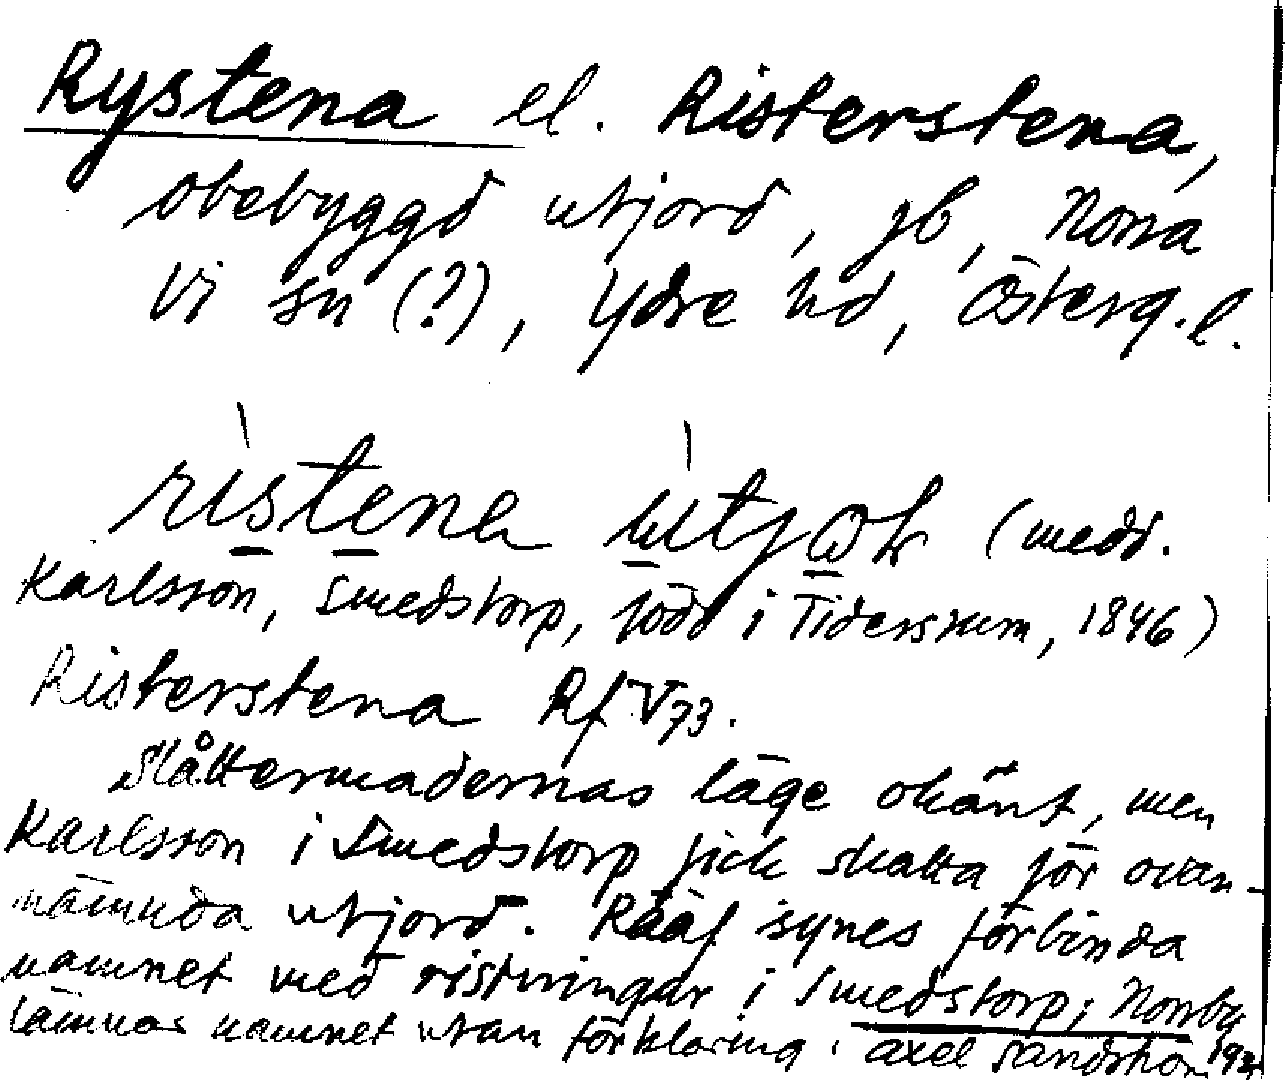 Rystena el. Risterstena,
obebyggd utjord, jb, Norra
Vi sn (?), Ydre hd, Österg.l.
ristena ùtjoḷ (medd.
Karlsson, Smedstorp, född i Tidersrum, 1846)
Risterstena Rf V 73.
Slåttermadernas läge okänt, men
Karlsson i Smedstorp fick skatta för ovan-
nämnda utjord. Rääf synes förbinda
namnet med ristningar i Smedstorp; Norrby
lämnar namnet utan förklaring. Axel Sandström